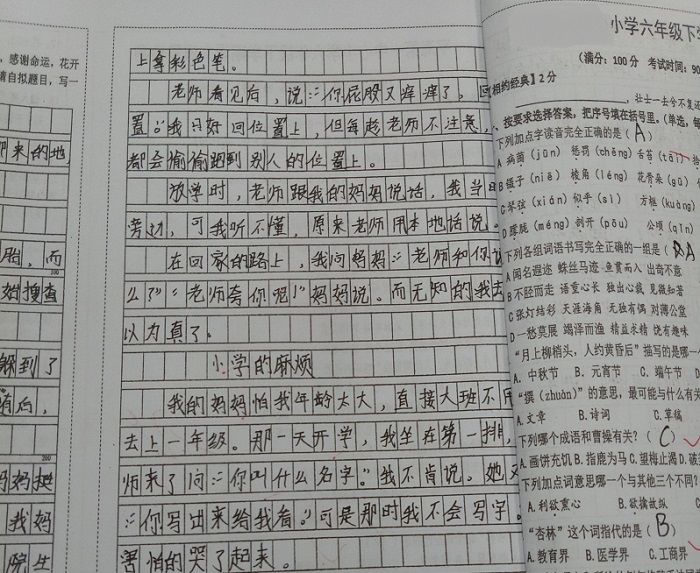 ，感谢命运，花开
请自拟题目，写一
来的地
胎，而
始搜查
躲到了
有后，
妈妈挺
我妈
院生
上拿彩色笔。
老师看见后，说：“你屁股又痒痒了。回
置。”我只好回位置上，但每趁老师不注意，
都会偷偷跑到别人的位置上。
放学时，老师跟我的妈妈说话，我当
旁边，可我听不懂，原来老师用本地话说。
在回家的路上，我问妈妈：“老师和你说
么了”“老师夸你呢！”妈妈说。而无知的我
以为真了。
小学的麻烦
我的妈妈怕我年龄太大，直接大班不用
去上一年级。那一天开学，我坐在第一排，
师来了问：“你叫什么名字。”我不肯说。她又
：“你写出来给我看。”可是那时我不会写字。
害怕的哭了起来。
小学六年级下
（满分：100分 考试时间：90
相约经典】2分
，壮士一去兮不复还
按要求选择答案，把序号填在括号里。（单选，每
下列加点字读音完全正确的是（A）
A 病菌（jūn） 惩罚（chěng） 舌苔（tāi）
B 镊子（niè） 棱角（léng） 花骨朵（gū）
C 琴弦（xián） 似乎（sì） 方框（kuàng）
D 朦胧（méng） 剖开（pōu） 公顷（qǐn）
下列各组词语书写完全正确的一组是（A）
A 闻名遐迩 蛛丝马迹 鱼贯而入 出奇不意
B 不胫而走 语重心长 独出心裁 见微知著
C 张灯结彩 天涯海角 无独有偶 对薄公堂
D 一愁莫展 竭泽而渔 精益求精 饶有趣味
“月上柳梢头，人约黄昏后”描写的是哪一
A. 中秋节 B. 元宵节 C. 端午节 D
“馔（zhuàn）”的意思，最可能与什么有关
A. 文章 B. 诗词 C. 草稿
下列哪个成语和曹操有关？（C）
A. 画饼充饥 B. 指鹿为马 C. 望梅止渴 D. 破
下列加点词意思哪一个与其他三个不同？
A. 利欲熏心 B. 欲擒故纵 C
“杏林”这个词指代的是（B）
A. 教育界 B. 医学界 C. 工商界